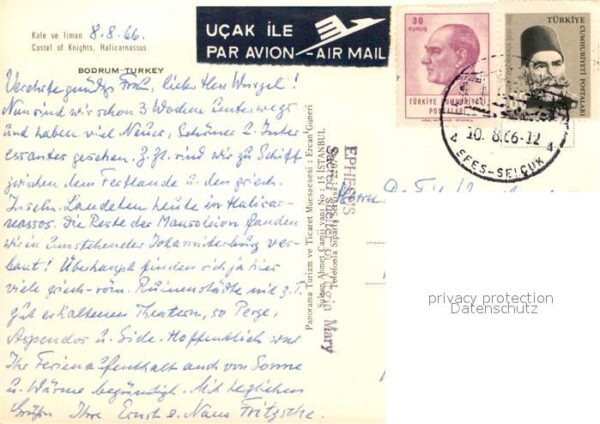 Kale ve liman 8.8.66.
Castel of Knights, Halicarnassus
BODRUM-TURKEY
UÇAK İLE
PAR AVION - AIR MAIL
30
KURUŞ
TÜRKİYE CUMHURİYETİ
POSTALARI
TÜRKİYE
CUMHURİYETİ POSTALARI
10.8.66-12
4 4
EFES-SELÇUK
Verehrte gnädige Frau, lieber Herr Wurzel!
Nun sind wir schon 3 Wochen unterwegs
und haben viel Neues, Schönes u. Inter-
essantes gesehen. Z.Zt. sind wir zu Schiff
zwischen dem Festlande u. den griech.
Inseln. Landeten heute in Halicar-
nassos. Die Reste des Mausoleion fanden
wir in umstehender Johanniterburg ver-
baut! Überhaupt finden sich ja hier
viele griech-röm. Ruinenstädte mit z.T.
gut erhaltenen Theatern, so Perge,
Aspendos u. Side. Hoffentlich war
Ihr Ferienaufenthalt auch von Sonne
u. Wärme begünstigt. Mit herzlichen
Grüßen Ihre Ernst u. Fritzsche.
Panorama Turizm ve Ticaret Muessesesi: Ercan Guneri
Sultan Ahmet Camii yanı No: 15 İSTANBUL
EPHESUS
Virgin Mary
Herrn
privacy protection
Datenschutz